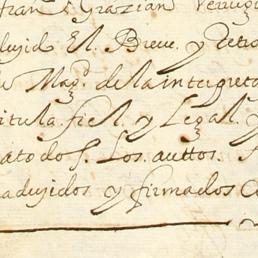 fran Grazian
dujid El. Breve. y
Magd. de la intepreta
titula. fiel. y Legal. y
ato do s. Los. auttos.
adujidos y firmados